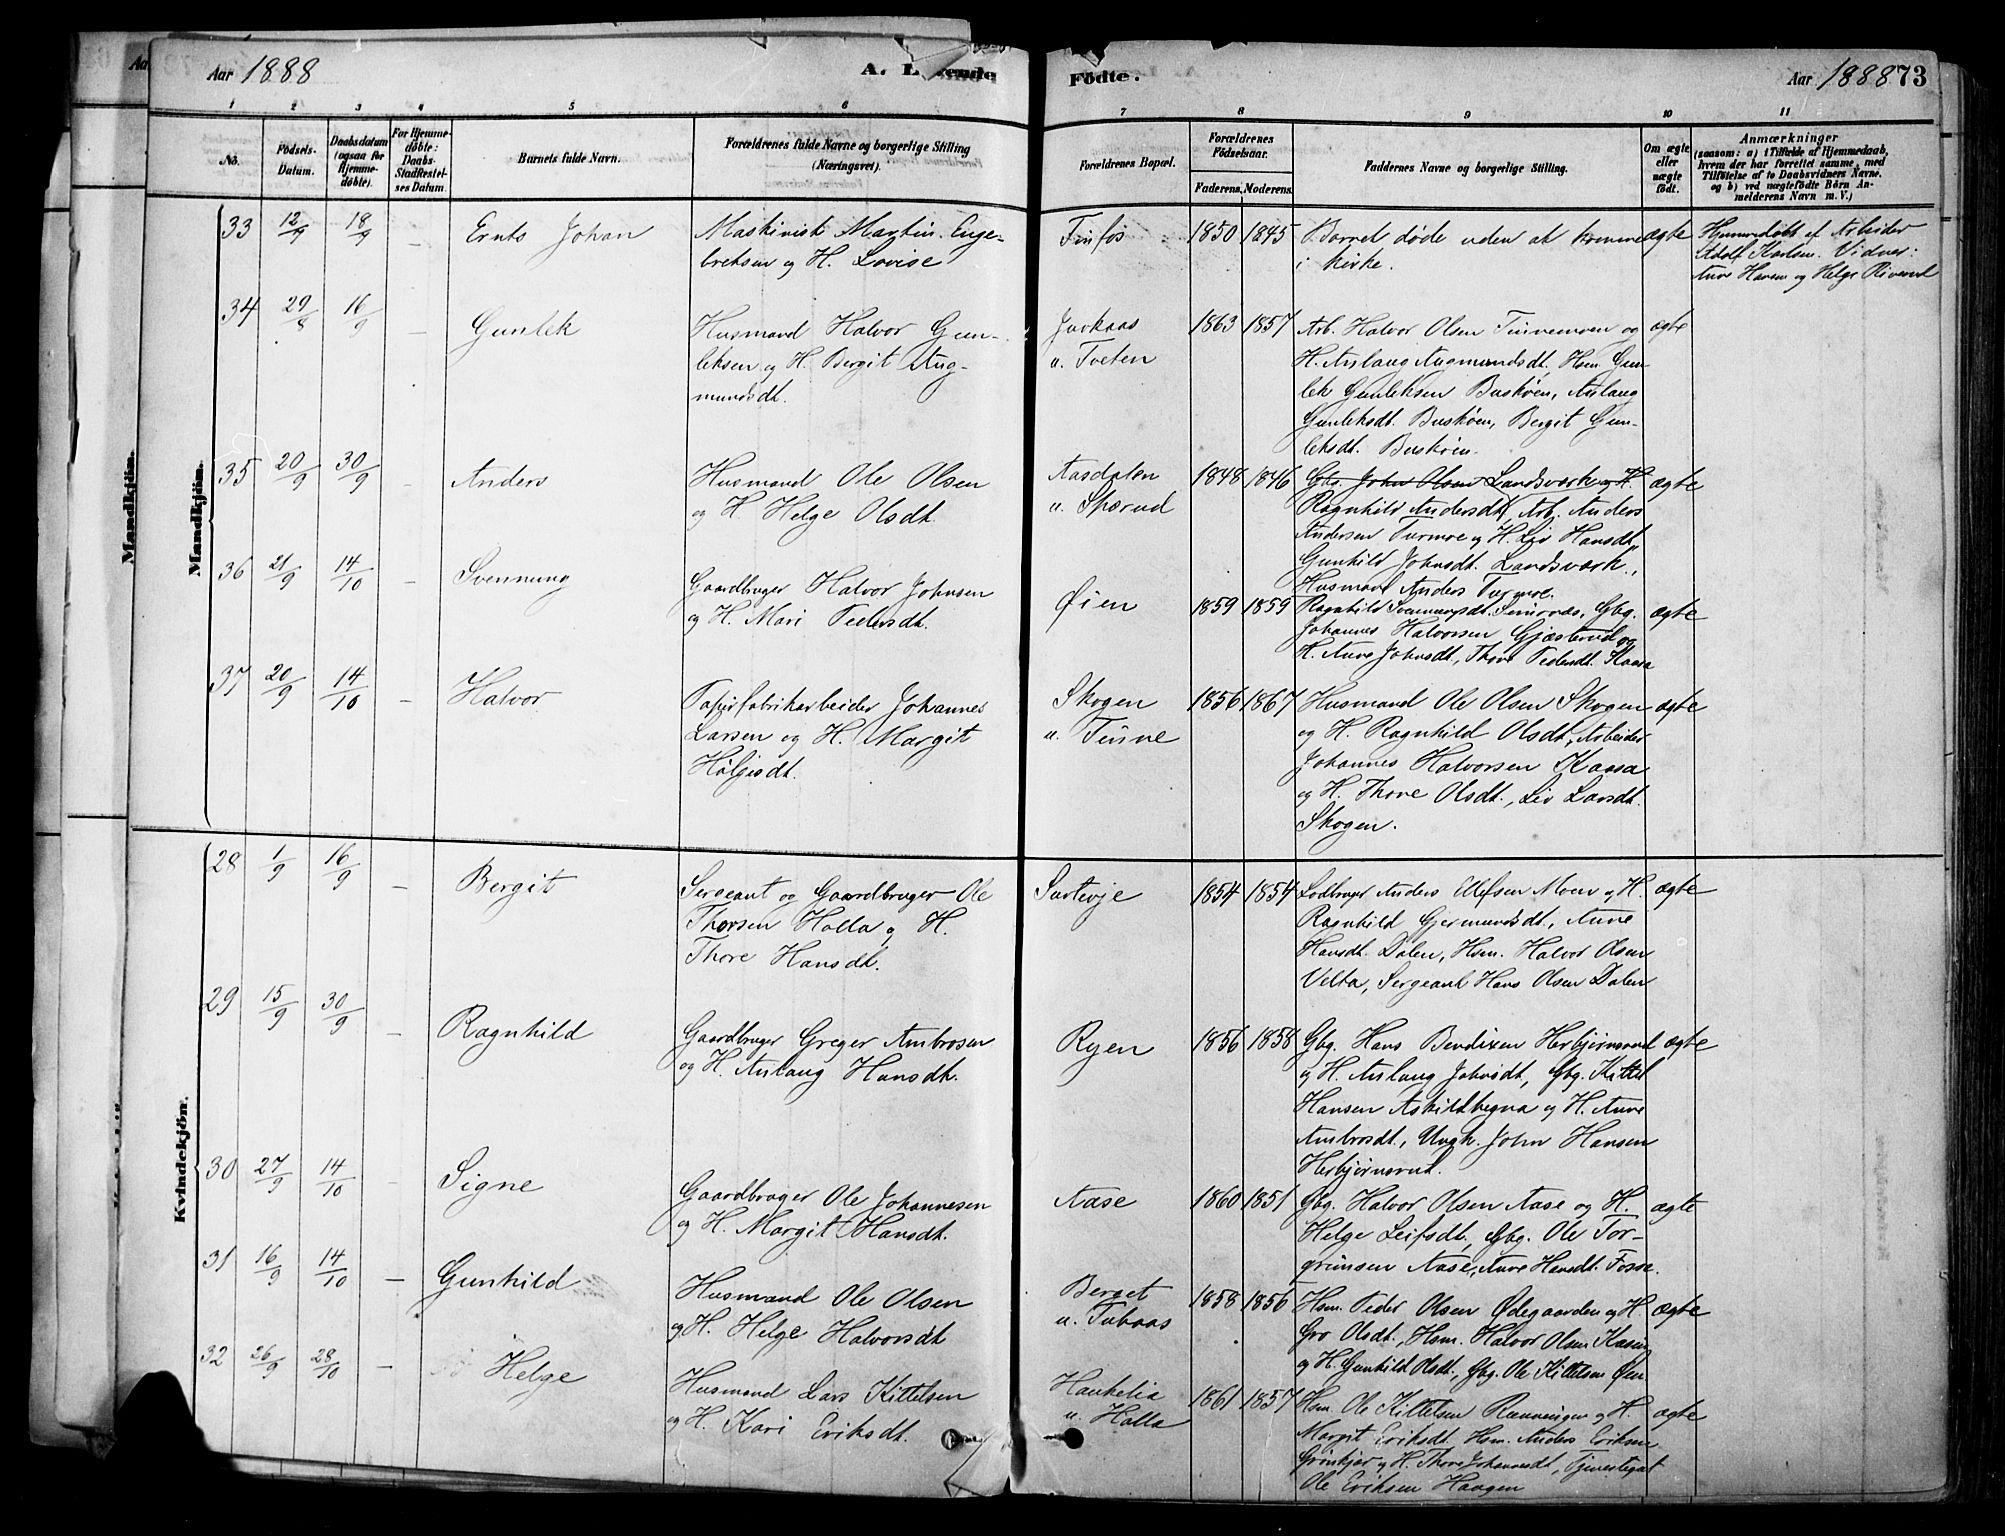 Aar 1888
A. Levende
Födte.
Aar 1888
73
1 2 3 4 5 6 7 8 9 10 11
No.
Födsels-
Datum.
Daabsdatum
(ogsaa for
Hjemme-
döbte).
For Hjemme-
döbte:
Daabs-
Stadfæstel-
ses Datum.
Barnets fulde Navn.
Forældrenes fulde Navne og borgerlige Stilling
(Næringsvei).
Forældrenes Bopæl.
Forældrenes
Födselsaar.
Faderens. Moderens.
Faddernes Navne og borgerlige Stilling.
Om ægte
eller
uægte
födt.
Anmærkninger
(saasom: a) i Tilfælde af Hjemmedaab,
hvem der har forrettet samme, med
Tilföielse af to Daabsvidners Navne,
og b) ved uægtefödte Börn An-
melderens Navn m. V.)
Mandkjön.
Mandkjön.
33 12/9 18/9 - Ernts Johan
Maskinist Martin Enge-
bretsen og H. Lovise
Tinfos 1850 1845
Barnet døde uden at komme
i Kirke.
ægte
Hjemmedøbt af Arbeider
Adolf Karlsen. Vidner:
Anne Hansen og Helge Riverud
34 29/8 16/9 - Gunlek
Husmand Halvor Gun-
leksen og H. Bergit Aug-
mundsdt.
Juvkaas
u. Tveten
1863 1857
Arb. Halvor Olsen Tinnemoen og
H. Aslaug Augmundsdt. Hsm. Gun
lek Gunleksen Buskøen, Aslaug
Gunleksdt. Buskøen, Bergit Gun-
leksdt. Buskøen.
ægte
35 20/9 30/9 - Anders
Husmand Ole Olsen
og H. Helge Olsdt.
Aasdalen
u. Skærud
1848 1846
Gbg. John Olsen Landsværk og H.
Ragnhild Andersdt. Arb. Anders
Andersen Turmoe og H. Liv Hansdt,
Gunhild Johnsdt. Landsværk,
Husmand Anders Turmoe.
ægte
36 21/9 14/10 - Svennung
Gaardbruger Halvor Johnsen
og H. Mari Pedersdt.
Øien 1859 1859
Ragnhild Svennungsdt. Semnæs, Gbg.
Johannes Halvorsen Gjæsterud og
H. Anne Johnsdt., Thore Pedersdt. Kaasa
ægte
37 20/9 14/10 - Halvor
Papirfabrikarbeider Johannes
Larsen og H. Margit
Høljesdt.
Skogen
u. Tinne
1856 1867
Husmand Ole Olsen Skogen
og H. Ragnhild Olsdt, Arbeider
Johannes Halvorsen Kaasa
og H. Thone Olsdt., Liv Larsdt.
Skogen.
ægte
Kvindekjön.
28 1/9 16/9 - Bergit
Sergeant og Gaardbruger Ole
Thorsen Holla og H.
Thore Hansdt.
1854 1854
Lodbruger Anders Olefsen Moen og H.
Ragnhild Gjermundsdt., Anne
Hansdt. Dalen, Hsm. Halvor Olsen
Velta, Sergeant Hans Olsen Dalen
ægte
29 15/9 30/9 - Ragnhild
Gaardbruger Greger Ambrosen
og H. Aslaug Hansdt.
Ryen 1856 1858
Gbg. Hans Bendixen Herbjørnsrud
og H. Aslaug Johnsdt, Gbg. Kittel
Hansen Askildbegna og H. Anne
Ambrosdt., Ungk. John Hansen
Herbjørnsrud.
ægte
30 27/9 14/10 Signe
Gaardbruger Ole Johannesen
og H. Margit Hansdt.
Aase 1860 1851
Gbg. Halvor Olsen Aase og H.
Helge Leifsdt, Gbg. Ole Tor-
grimsen Aase, Anne Hansdt. Fosse.
ægte
31 16/9 14/10 - Gunhild
Husmand Ole Olsen
og H. Helge Halvorsdt
Berget
u. Tubaas
1858 1856
Hsm. Peder Olsen Ødegaarden og H.
Gro Olsdt., Hsm. Halvor Olsen Kasin
og H. Gunhild Olsdt., Gbg. Ole Kittelsen Øen
ægte
32 26/9 28/10 - Helge
Husmand Lars Kittelsen
og H. Kari Eriksdt.
Haukelia
u. Holla
1861 1857
Hsm. Ole Kittelsen Rønningen og H.
Margit Eriksdt. Hsm. Anders Eriksen
Grønkjær og H. Thore Johannesdt, Tjenestegut
Ole Eriksen Haugen
ægte